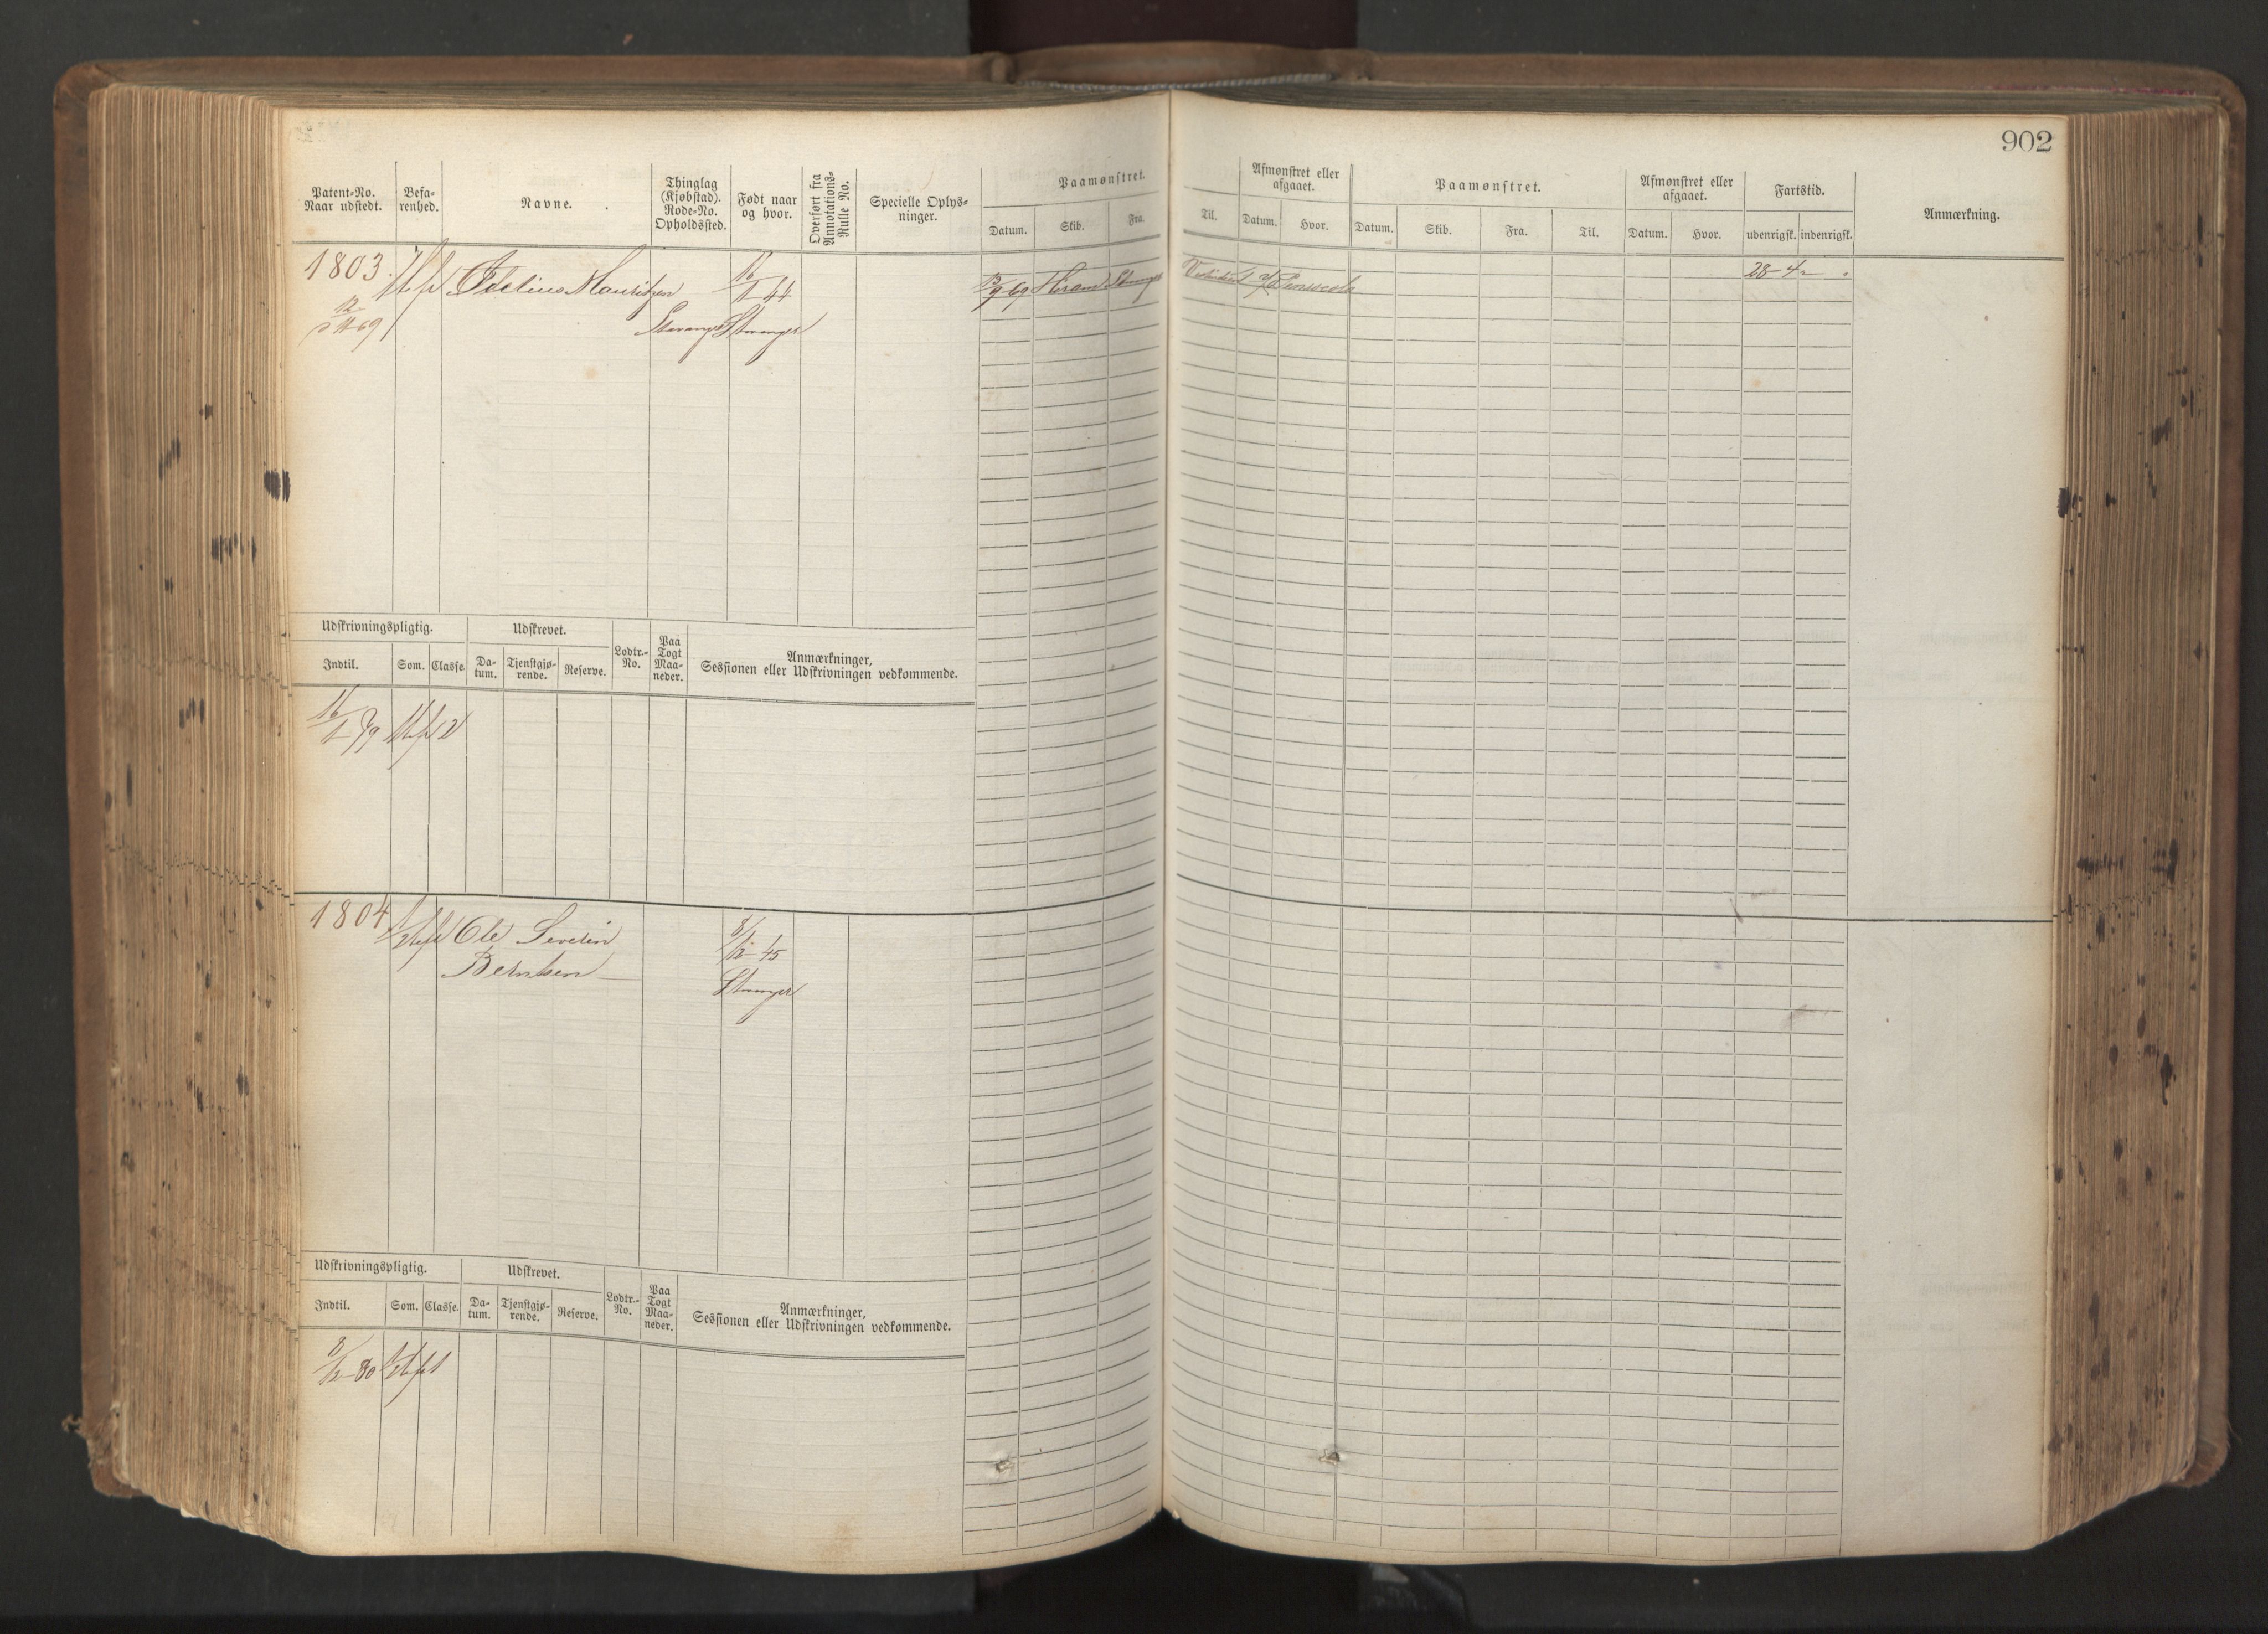 902
Patent-No. Naar udstedt.
Befarenhed.
Navne.
Thinglag (Kjøbstad). Rode-No. Opholdssted.
Født naar og hvor.
Overført fra Annotations-Rulle No.
Specielle Oplysninger.
Paamønstret.
Datum. Skib. Fra. Til.
Afmønstret eller afgaaet.
Datum. Hvor.
Paamønstret.
Datum. Skib. Fra. Til.
Afmønstret eller afgaaet.
Datum. Hvor.
Fartstid.
udenrigsk. indenrigsk.
Anmærkning.
1803. Mauritzen 16/11 44 9 69 Stavanger 28
12/11 69 Stavanger Stavanger
Udskrivningspligtig. Udskrevet. Lodtr.-No. Paa Togt Maaneder. Anmærkninger, Sessionen eller Udskrivningen vedkommende.
Indtil. Som. Classe. Datum. Tjenstgjørende. Reserve.
16/1 79 2
1804 Ole Severin 8/12 45
Berntsen Stavanger
Udskrivningspligtig. Udskrevet. Lodtr.-No. Paa Togt Maaneder. Anmærkninger, Sessionen eller Udskrivningen vedkommende.
Indtil. Som. Classe. Datum. Tjenstgjørende. Reserve.
8/12 80 1